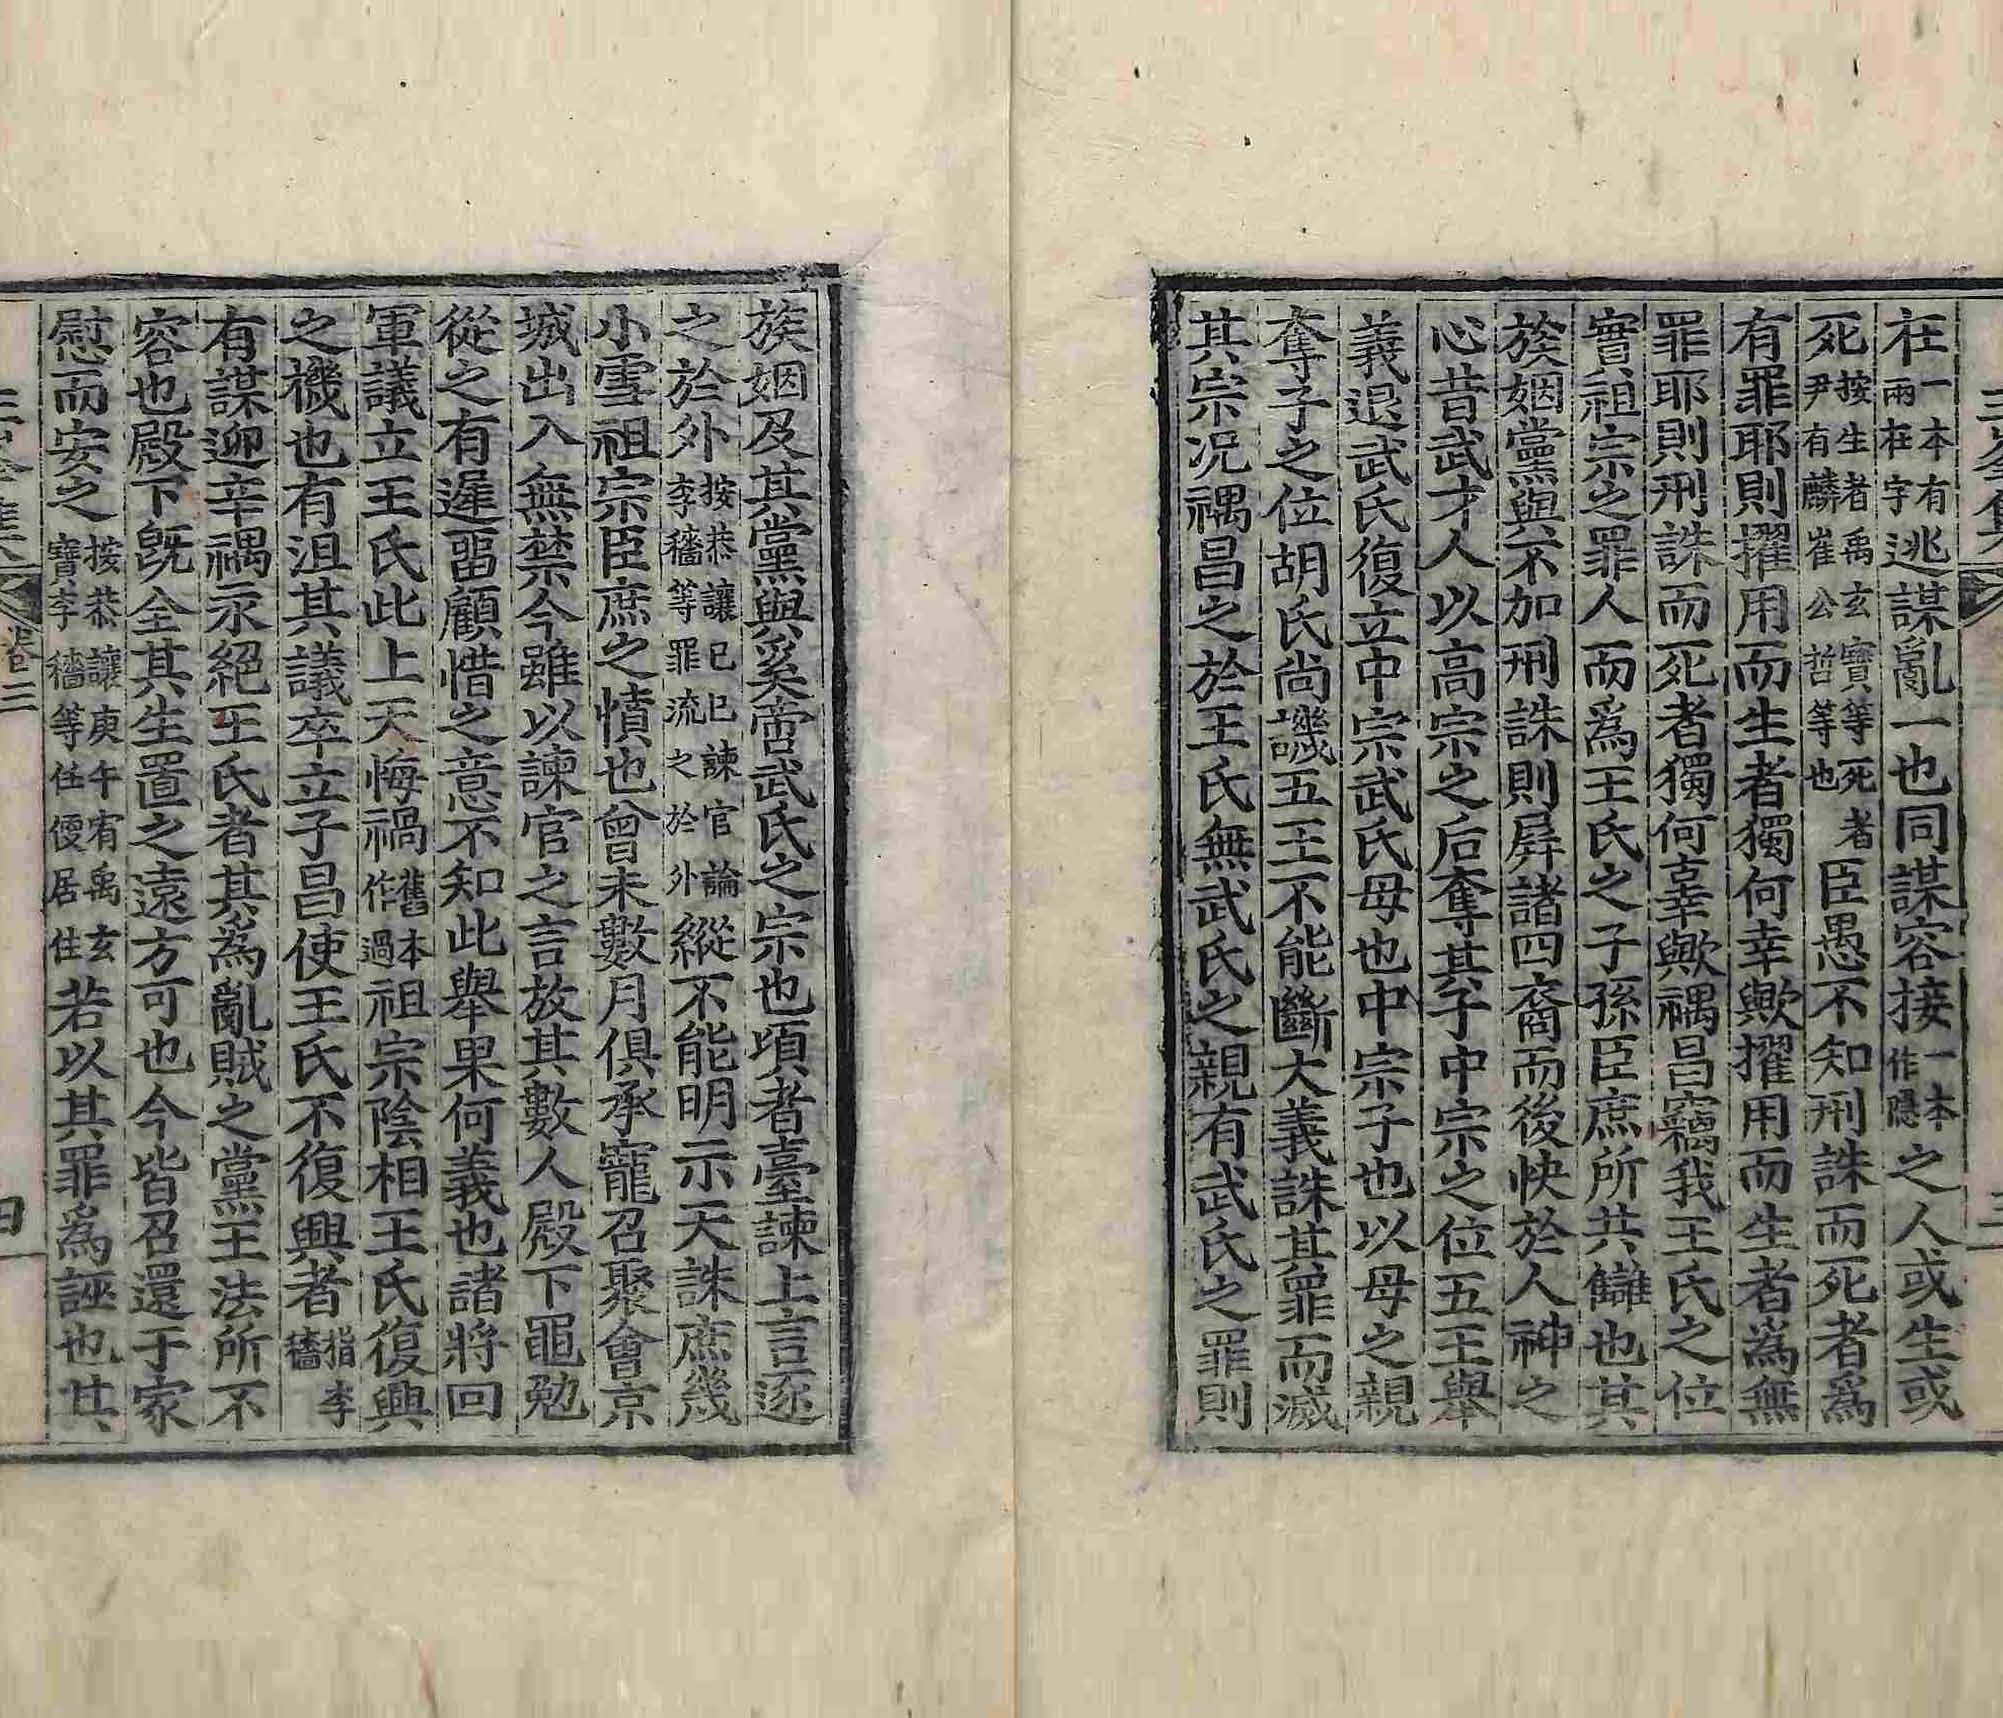 三峯集
三
在一本有兩在字逃謀亂一也同謀容接一本作隱之人或生或
死按生者禹玄寶等死者尹有麟崔公哲等也臣愚不知刑誅而死者爲
有罪耶則擢用而生者獨何幸歟擢用而生者爲無
罪耶則刑誅而死者獨何辜歟禑昌竊我王氏之位
實祖宗之罪人而爲王氏之子孫臣庶所共讎也其
族姻黨與不加刑誅則屛諸四裔而後快於人神之
心昔武才人以高宗之后奪其子中宗之位五王擧
義退武氏復立中宗武氏母也中宗子也以母之親
奪子之位胡氏尙譏五王不能斷大義誅其罪而滅
其宗况禑昌之於王氏無武氏之親有武氏之罪則
族姻及其黨與奚啻武氏之宗也頃者臺諫上言逐
之於外按恭讓己巳諫官論李穡等罪流之於外縱不能明示天誅庶幾
小雪祖宗臣庶之憤也曾未數月俱承寵召聚會京
城出入無禁今雖以諫官之言放其數人殿下黽勉
從之有遲留顧惜之意不知此擧果何義也諸將回
軍議立王氏此上天悔禍舊本作過祖宗陰相王氏復興
之機也有沮其議卒立子昌使王氏不復興者指李穡
有謀迎辛禑永絕王氏者其爲亂賊之黨王法所不
容也殿下旣全其生置之遠方可也今皆召還于家
慰而安之按恭讓庚午宥禹玄寶李穡等任便居住若以其罪爲誣也其
卷三
四